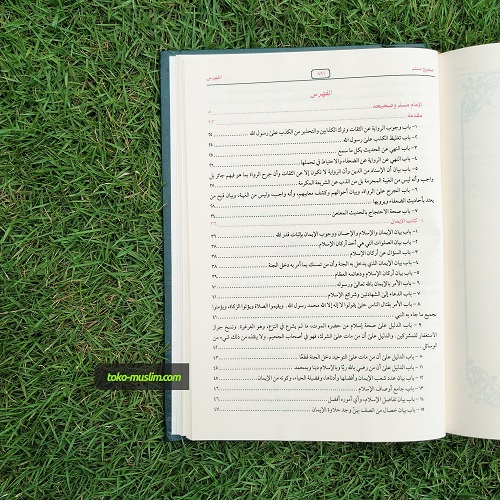 صحيح مسلم
٨٩١
الفهرس
الفهرس
الإمام مسلم وصحيحه
مقدمة
١- باب وجوب الرواية عن الثقات وترك الكذابين والتحذير من الكذب على رسول الله
٢- باب تغليظ الكذب على رسول الله
٣- باب النهي عن الحديث بكل ما سمع
٤- باب النهي عن الرواية عن الضعفاء والاحتياط في تحملها
٥- باب بيان أن الإسناد من الدين وأن الرواية لا تكون إلا عن الثقات وأن جرح الرواة بما هو فيهم جائز بل
واجب وأنه ليس من الغيبة المحرمة بل من الذب عن الشريعة المكرمة
٦- باب الجرح على الرواة، وبيان أحوالهم وكشف معايبهم، وأنه واجب، وليس من الغيبة، وبيان قبح من
يعتد بأحاديث الضعفاء ويرويها
٧- باب صحة الاحتجاج بالحديث المعنعن
١- كتاب الإيمان
١- باب بيان الإيمان والإسلام والإحسان ووجوب الإيمان بإثبات قدر الله
٢- باب بيان الصلوات التي هي أحد أركان الإسلام
٣- باب السؤال عن أركان الإسلام
٤- باب بيان الإيمان الذي يدخل به الجنة وأن من تمسك بما أمر به دخل الجنة
٥- باب بيان أركان الإسلام ودعائمه العظام
٦- باب الأمر بالإيمان بالله تعالى ورسوله
٧- باب الدعاء إلى الشهادتين وشرائع الإسلام
٨- باب الأمر بقتال الناس حتى يقولوا لا إله إلا الله محمد رسول الله. ويقيموا الصلاة ويؤتوا الزكاة، ويؤمنوا
بجميع ما جاء به النبي
٩- باب الدليل على صحة إسلام من حضره الموت، ما لم يشرع في النزع، وهو الغرغرة. ونسخ جواز
الاستغفار للمشركين. والدليل على أن من مات على الشرك، فهو في أصحاب الجحيم. ولا ينقذه من ذلك شيء من
الوسائل
١٠- باب الدليل على أن من مات على التوحيد دخل الجنة قطعًا
١١- باب الدليل على أن من رضي بالله ربًا وبالإسلام دينا وبمحمد
١٢- باب بيان عدد شعب الإيمان وأفضلها وأدناها، وفضيلة الحياء، وكونه من الإيمان
١٣- باب جامع أوصاف الإسلام
١٤- باب بيان تفاضل الإسلام، وأي أموره أفضل
١٥- باب بيان خصال من اتصف بهن وجد حلاوة الإيمان
toko-muslim.com